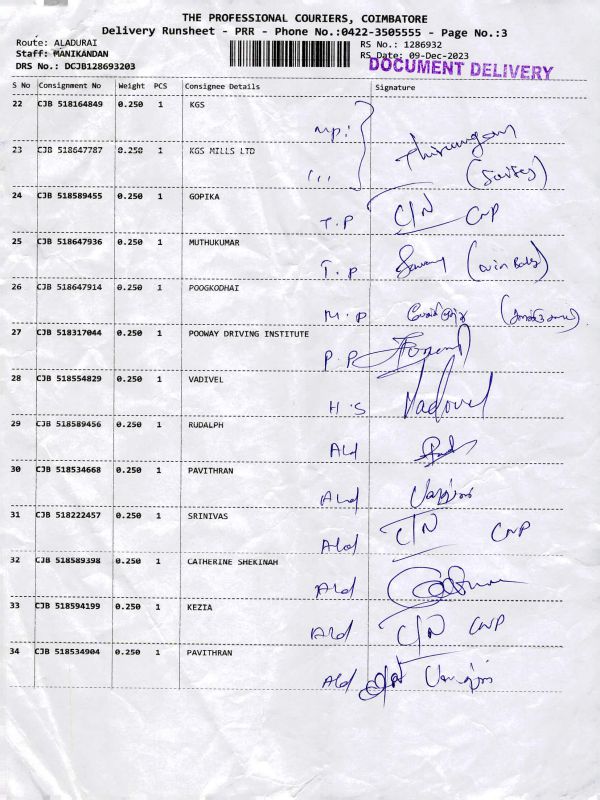 THE PROFESSIONAL COURIERS, COIMBATORE
Delivery Runsheet - PRR - Phone No.:0422-3505555 - Page No.:3
Route: ALADURAI
Staff: MANIKANDAN
DRS No.: DCJB128693203
RS No.: 1286932
RS Date: 09-Dec-2023
DOCUMENT DELIVERY
S No Consignment No Weight PCS Consignee Details Signature
22 CJB 518164849 0.250 1 KGS
MP:
23 CJB 518647787 0.250 1 KGS MILLS LTD
24 CJB 518589455 0.250 1 GOPIKA
T.P C/N CNP
25 CJB 518647936 0.250 1 MUTHUKUMAR
T.P
26 CJB 518647914 0.250 1 POOGKODHAI
M.P
27 CJB 518317044 0.250 1 POOWAY DRIVING INSTITUTE
P.P
28 CJB 518554829 0.250 1 VADIVEL
H.S Vadivel
29 CJB 518589456 0.250 1 RUDALPH
Ald
30 CJB 518534668 0.250 1 PAVITHRAN
Ald
31 CJB 518222457 0.250 1 SRINIVAS
Ald C/N CNP
32 CJB 518589398 0.250 1 CATHERINE SHEKINAH
Ald
33 CJB 518594199 0.250 1 KEZIA
Ald C/N CNP
34 CJB 518534904 0.250 1 PAVITHRAN
Ald